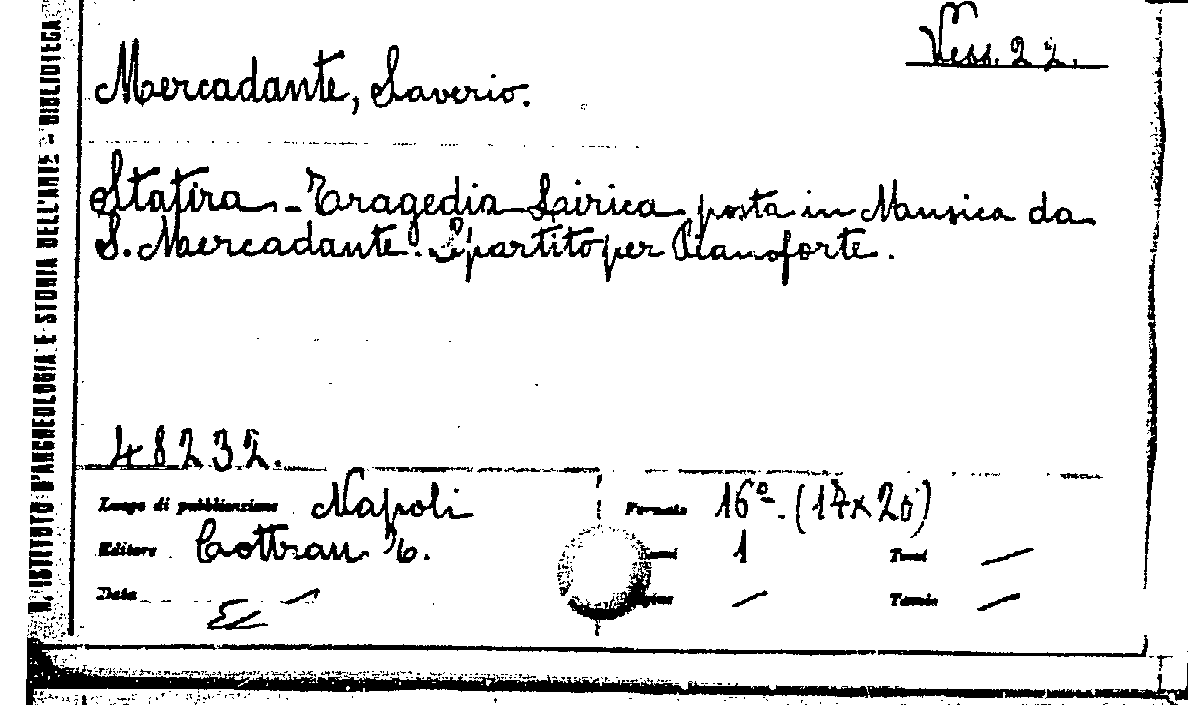 R. ISTITUTO D'ARCHEOLOGIA E STORIA DELL'ARTE - BIBLIOTECA
Vess. 22.
Mercadante, Saverio.
Statira - Tragedia Lirica posta in Musica da
S. Mercadante. Spartito per Pianoforte.
48232.
Luogo di pubblicazione Napoli
Formato 16º. (14x20)
Editore Cottrau
1
Tomi —
Data —
—
Tomio —